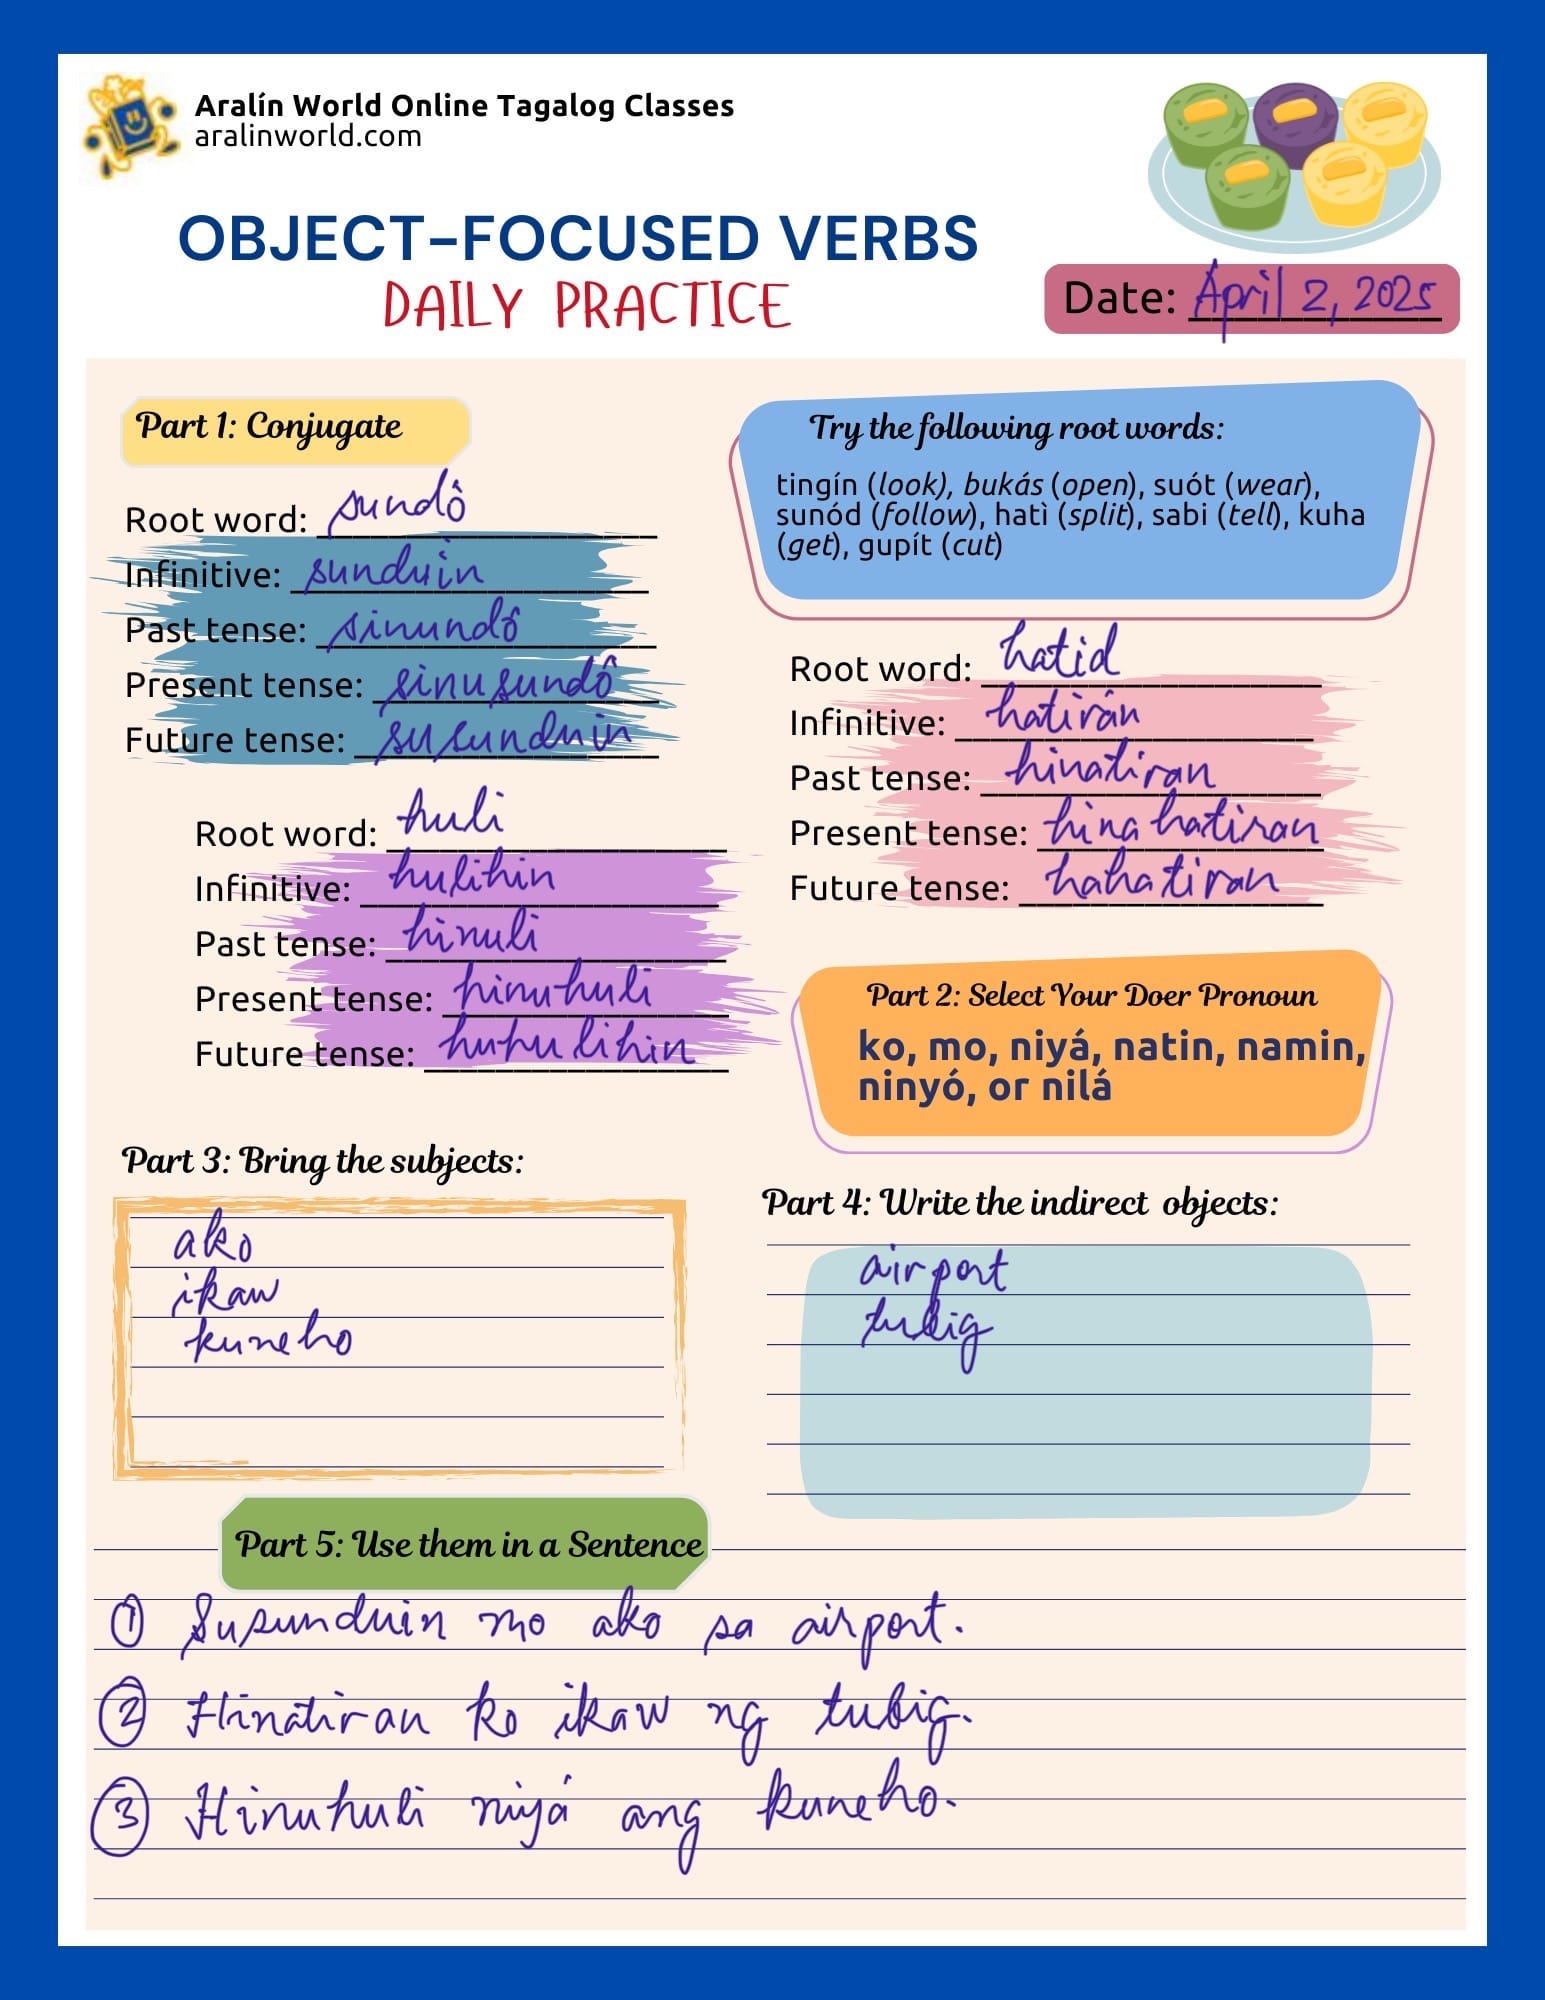 Aralín World Online Tagalog Classes
aralinworld.com
OBJECT-FOCUSED VERBS
DAILY PRACTICE
Date: April 2, 2025
Part 1: Conjugate
Root word: sundô
Infinitive: sunduin
Past tense: sinundô
Present tense: sinusundô
Future tense: susunduin
Root word: huli
Infinitive: hulihin
Past tense: hinuli
Present tense: hinuhuli
Future tense: huhulihin
Try the following root words:
tingín (look), bukás (open), suót (wear),
sunód (follow), hatì (split), sabi (tell), kuha
(get), gupít (cut)
Root word: hatid
Infinitive: hatirán
Past tense: hinatiran
Present tense: hinahatiran
Future tense: hahatiran
Part 2: Select Your Doer Pronoun
ko, mo, niyá, natin, namin,
ninyó, or nilá
Part 3: Bring the subjects:
ako
ikaw
kuneho
Part 4: Write the indirect objects:
airport
tubig
Part 5: Use them in a Sentence
① Susunduin mo ako sa airport.
② Hinatiran ko ikaw ng tubig.
③ Hinuhuli niyá ang kuneho.